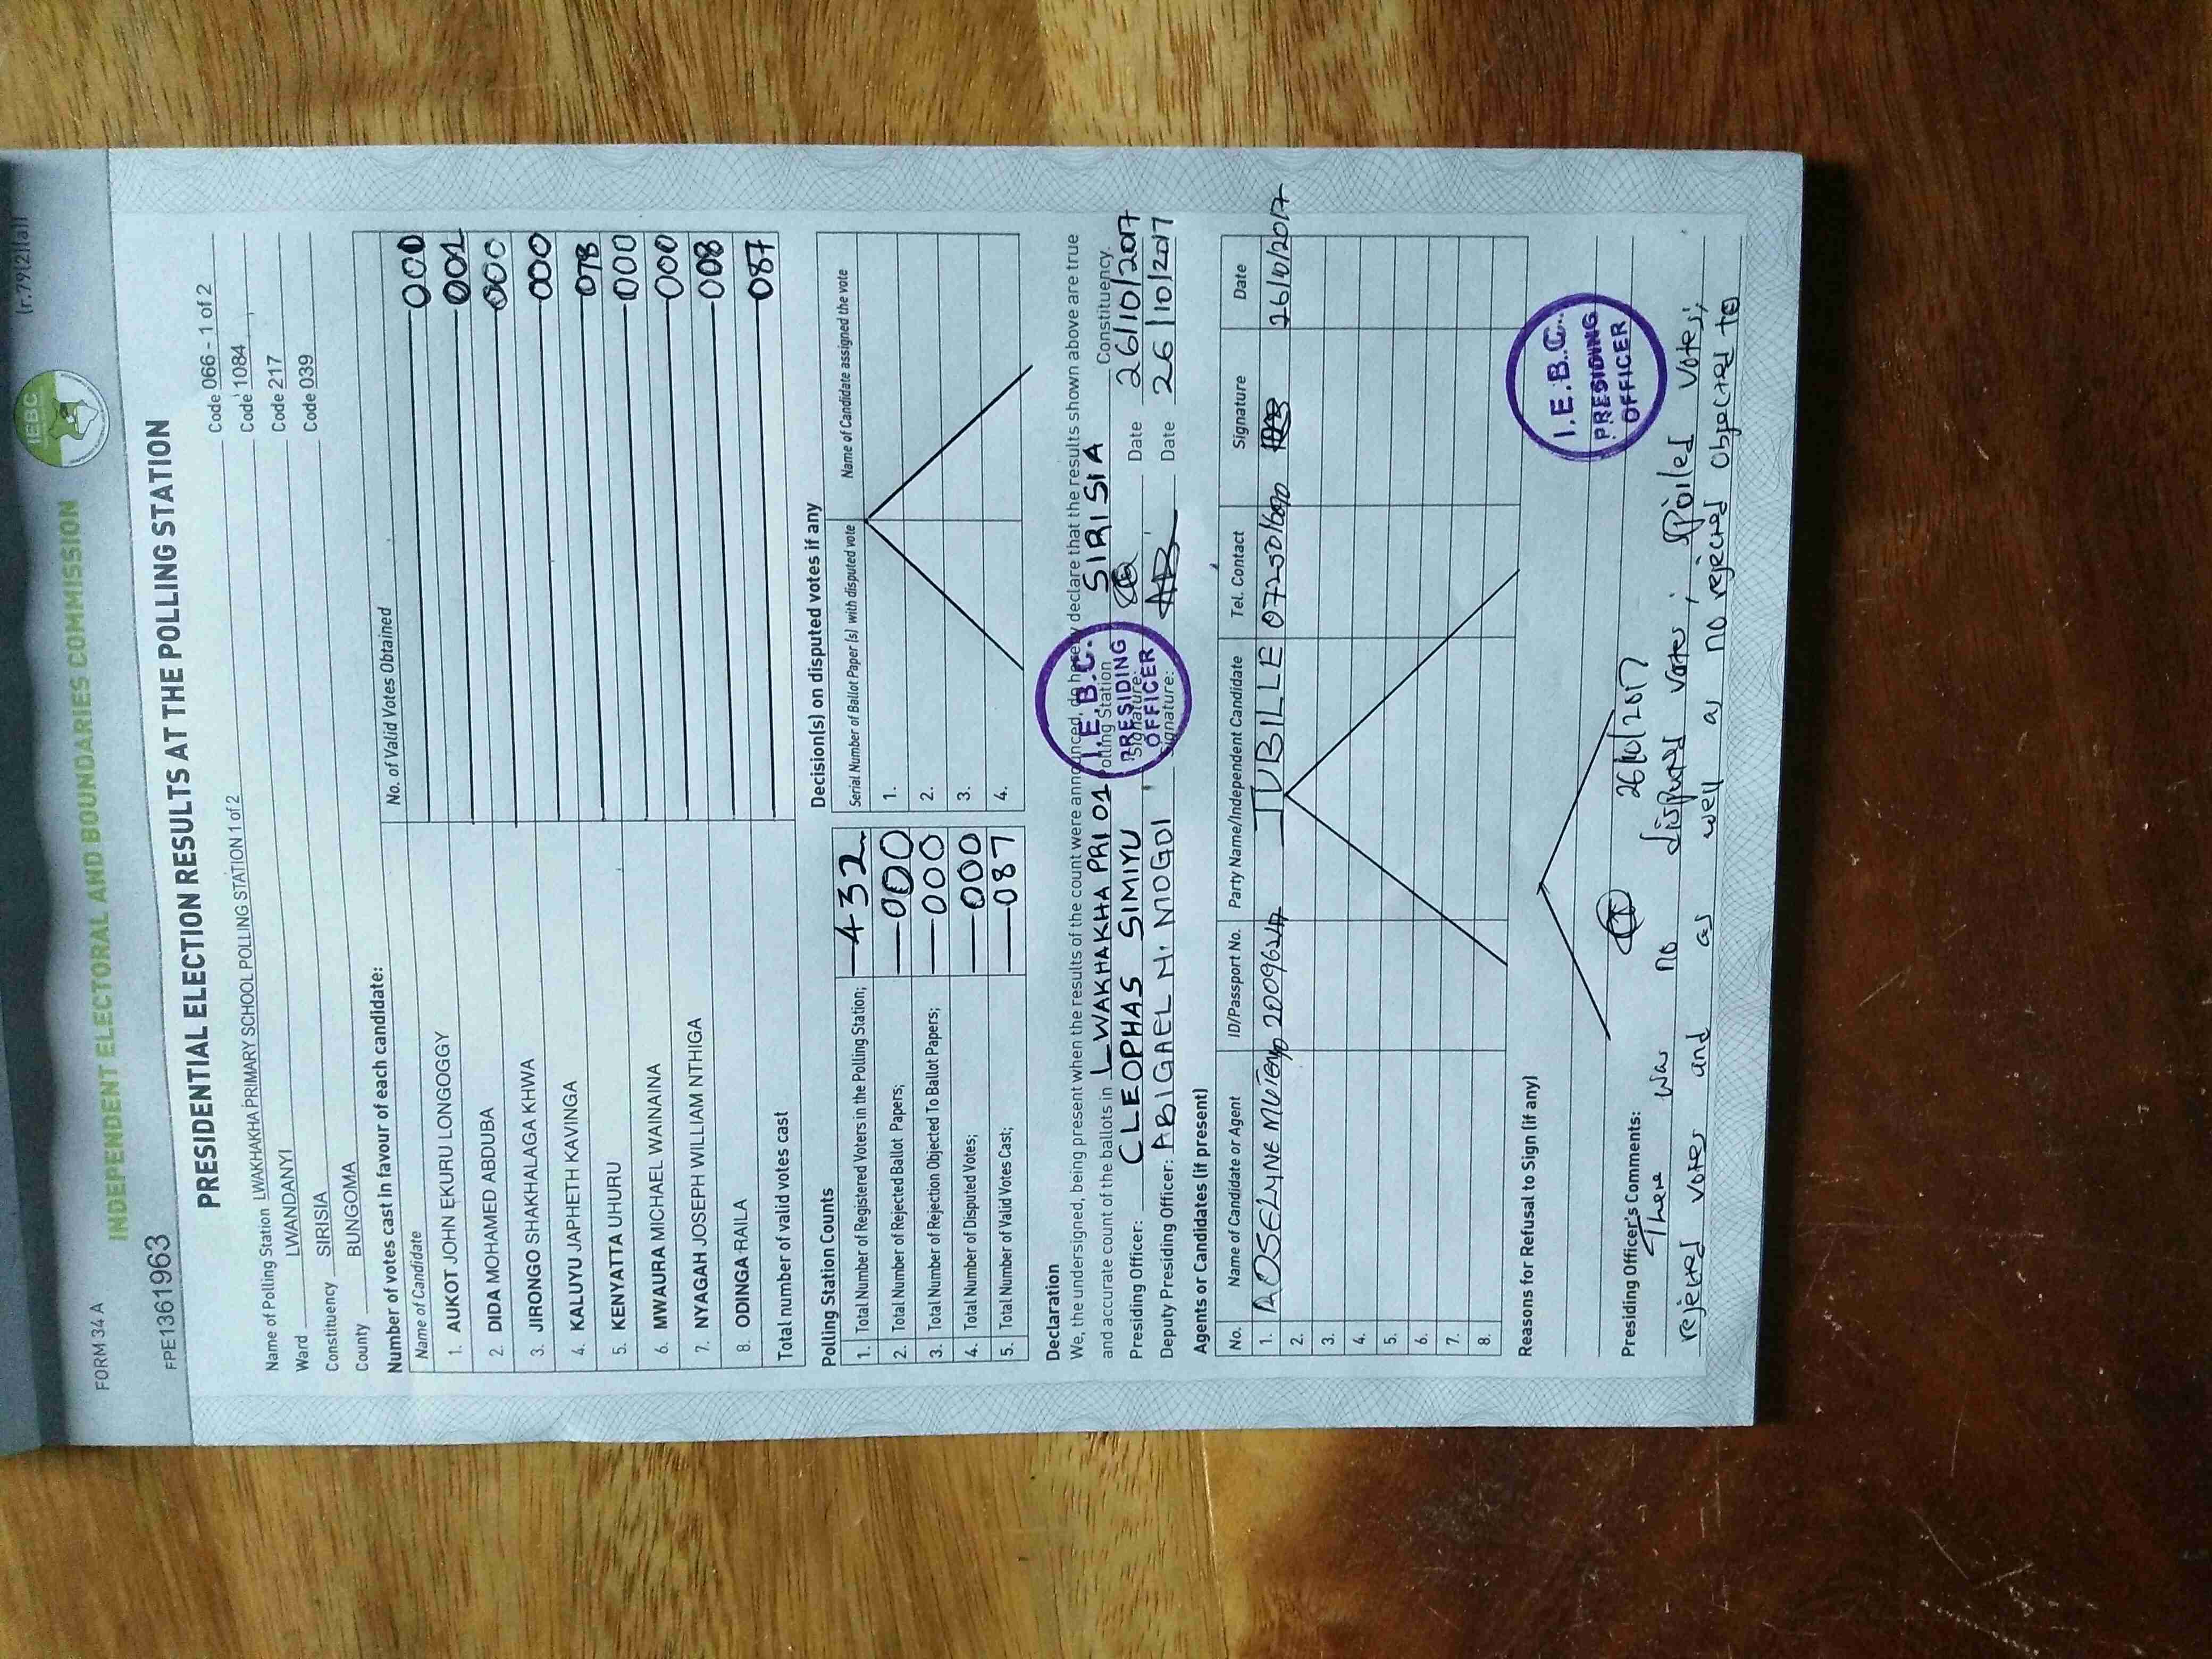 (r.79(2)(a))
FORM 34 A
INDEPENDENT ELECTORAL AND BOUNDARIES COMMISSION
IEBC
FPE1361963
PRESIDENTIAL ELECTION RESULTS AT THE POLLING STATION
Name of Polling Station LWAKHAKHA PRIMARY SCHOOL POLLING STATION 1 of 2 Code 066 - 1 of 2
Ward LWANDANYI Code 1084
Constituency SIRISIA Code 217
County BUNGOMA Code 039
Number of votes cast in favour of each candidate:
Name of Candidate No. of Valid Votes Obtained
1. AUKOT JOHN EKURU LONGOGGY 000
2. DIDA MOHAMED ABDUBA 001
3. JIRONGO SHAKHALAGA KHWA 000
4. KALUYU JAPHETH KAVINGA 000
5. KENYATTA UHURU 078
6. MWAURA MICHAEL WAINAINA 000
7. NYAGAH JOSEPH WILLIAM NTHIGA 000
8. ODINGA RAILA 008
Total number of valid votes cast 087
Polling Station Counts
1. Total Number of Registered Voters in the Polling Station; 432
2. Total Number of Rejected Ballot Papers; 000
3. Total Number of Rejection Objected To Ballot Papers; 000
4. Total Number of Disputed Votes; 000
5. Total Number of Valid Votes Cast; 087
Decision(s) on disputed votes if any
Serial Number of Ballot Paper (s) with disputed vote Name of Candidate assigned the vote
1.
2.
3.
4.
Declaration
We, the undersigned, being present when the results of the count were announced, do hereby declare that the results shown above are true
and accurate count of the ballots in LWAKHAKHA PRI 01 Polling Station SIRISIA Constituency.
Presiding Officer: CLEOPHAS SIMIYU Signature: Date 26/10/2017
Deputy Presiding Officer: ABIGAEL N. NOGOI Signature: Date 26/10/2017
I.E.B.C.
PRESIDING
OFFICER
Agents or Candidates (if present)
No. Name of Candidate or Agent ID/Passport No. Party Name/Independent Candidate Tel. Contact Signature Date
1. ROSELYNE JUBILLE 26/10/2017
2.
3.
4.
5.
6.
7.
8.
Reasons for Refusal to Sign (if any)
I.E.B.C.
PRESIDING
OFFICER
26/10/2017
Presiding Officer's Comments:
There was no disputed votes, spoiled votes,
rejected votes and as well as no rejected objected to